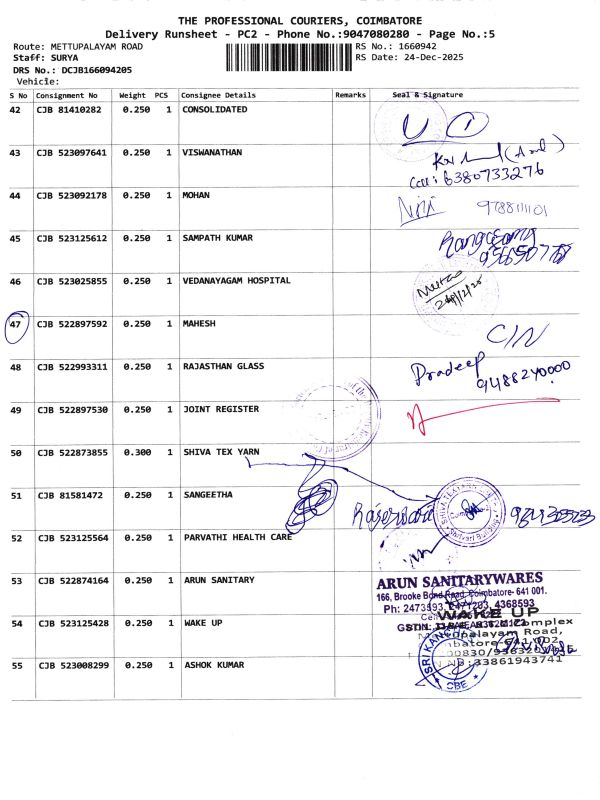 THE PROFESSIONAL COURIERS, COIMBATORE
Delivery Runsheet - PC2 - Phone No.:9047080280 - Page No.:5
Route: METTUPALAYAM ROAD RS No.: 1660942
Staff: SURYA RS Date: 24-Dec-2025
DRS No.: DCJB166094205
Vehicle:
S No Consignment No Weight PCS Consignee Details Remarks Seal & Signature
42 CJB 81410282 0.250 1 CONSOLIDATED
43 CJB 523097641 0.250 1 VISWANATHAN
Call: 6380733276
44 CJB 523092178 0.250 1 MOHAN
45 CJB 523125612 0.250 1 SAMPATH KUMAR
Rangasamy
46 CJB 523025855 0.250 1 VEDANAYAGAM HOSPITAL
24/12/25
47 CJB 522897592 0.250 1 MAHESH C/N
48 CJB 522993311 0.250 1 RAJASTHAN GLASS Pradeep
9488240000
49 CJB 522897530 0.250 1 JOINT REGISTER
50 CJB 522873855 0.300 1 SHIVA TEX YARN
51 CJB 81581472 0.250 1 SANGEETHA
52 CJB 523125564 0.250 1 PARVATHI HEALTH CARE
53 CJB 522874164 0.250 1 ARUN SANITARY
ARUN SANITARYWARES
166, Brooke Bond Road, Coimbatore- 641 001.
Ph: 2473593, 2471203, 4368593
54 CJB 523125428 0.250 1 WAKE UP
WAKE UP
Complex
Mettupalayam Road,
55 CJB 523008299 0.250 1 ASHOK KUMAR
33861943741
CBE